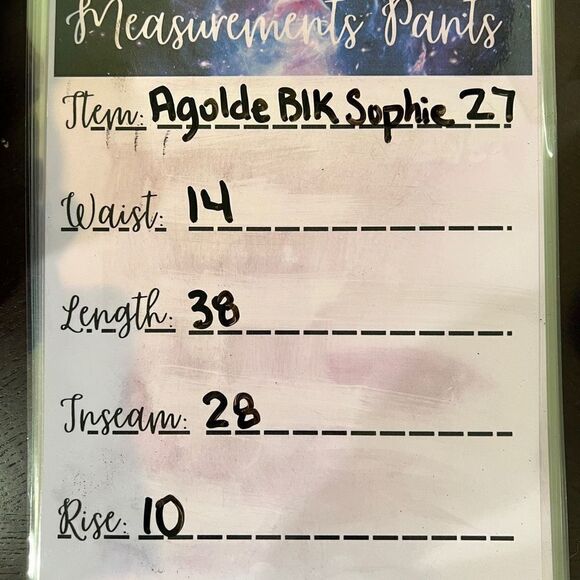 Measurements Pants
Item: Agolde Blk Sophie 27
Waist: 14
Length: 38
Inseam: 28
Rise: 10